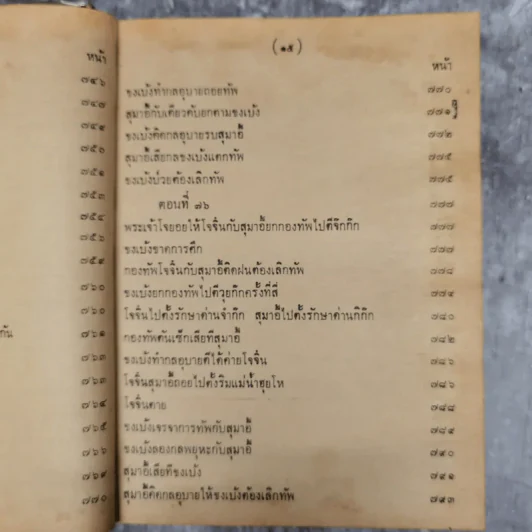 หน้า
๗๔๖
๗๔๗
๗๔๙
๗๕๐
๗๕๑
๗๕๓
๗๕๔
๗๕๖
๗๕๙
๗๖๐
๗๖๐
กัน ๗๖๑
๗๖๓
๗๖๓
๗๖๔
๗๖๕
๗๖๖
๗๖๙
๗๗๐
(๑๕)
หน้า
ขงเบ้งทำกลอุบายถอยทัพ ๗๗๐
สุมาอี้กับเตียวคับยกตามขงเบ้ง ๗๗๑
ขงเบ้งคิดกลอุบายรบสุมาอี้ ๗๗๒
สุมาอี้เสียกลขงเบ้งแตกทัพ ๗๗๕
ขงเบ้งป่วยต้องเลิกทัพ ๗๗๕
ตอนที่ ๗๖ ๗๗๗
พระเจ้าโจยอยให้โจจิ๋นกับสุมาอี้ยกกองทัพไปตีจ๊กก๊ก ๗๗๗
ขงเบ้งขาดการศึก ๗๗๗
กองทัพโจจิ๋นกับสุมาอี้ติดฝนต้องเลิกทัพ ๗๗๘
ขงเบ้งยกกองทัพไปตีวุยก๊กครั้งที่สี่ ๗๗๙
โจจิ๋นไปตั้งรักษาด่านจำก๊ก สุมาอี้ไปตั้งรักษาด่านกิก๊ก ๗๘๐
กองทัพตันเซ็กเสียทีสุมาอี้ ๗๘๒
ขงเบ้งทำกลอุบายตีได้ค่ายโจจิ๋น ๗๘๖
โจจิ๋นสุมาอี้ถอยไปตั้งริมแม่น้ำฮุยโห ๗๘๖
โจจิ๋นตาย ๗๘๘
ขงเบ้งเจรจาการทัพกับสุมาอี้ ๗๘๙
ขงเบ้งลองกลพยุหะกับสุมาอี้ ๗๙๐
สุมาอี้เสียทีขงเบ้ง ๗๙๑
สุมาอี้คิดกลอุบายให้ขงเบ้งต้องเลิกทัพ ๗๙๓